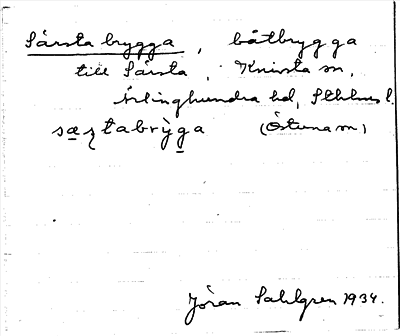 Särsta brygga, båtbrygga
till Särsta, Knivsta sn,
Ärlinghundra hd, Sthlms l.
sæʂtabrỳga (Östuna sn)
Jöran Sahlgren 1934.